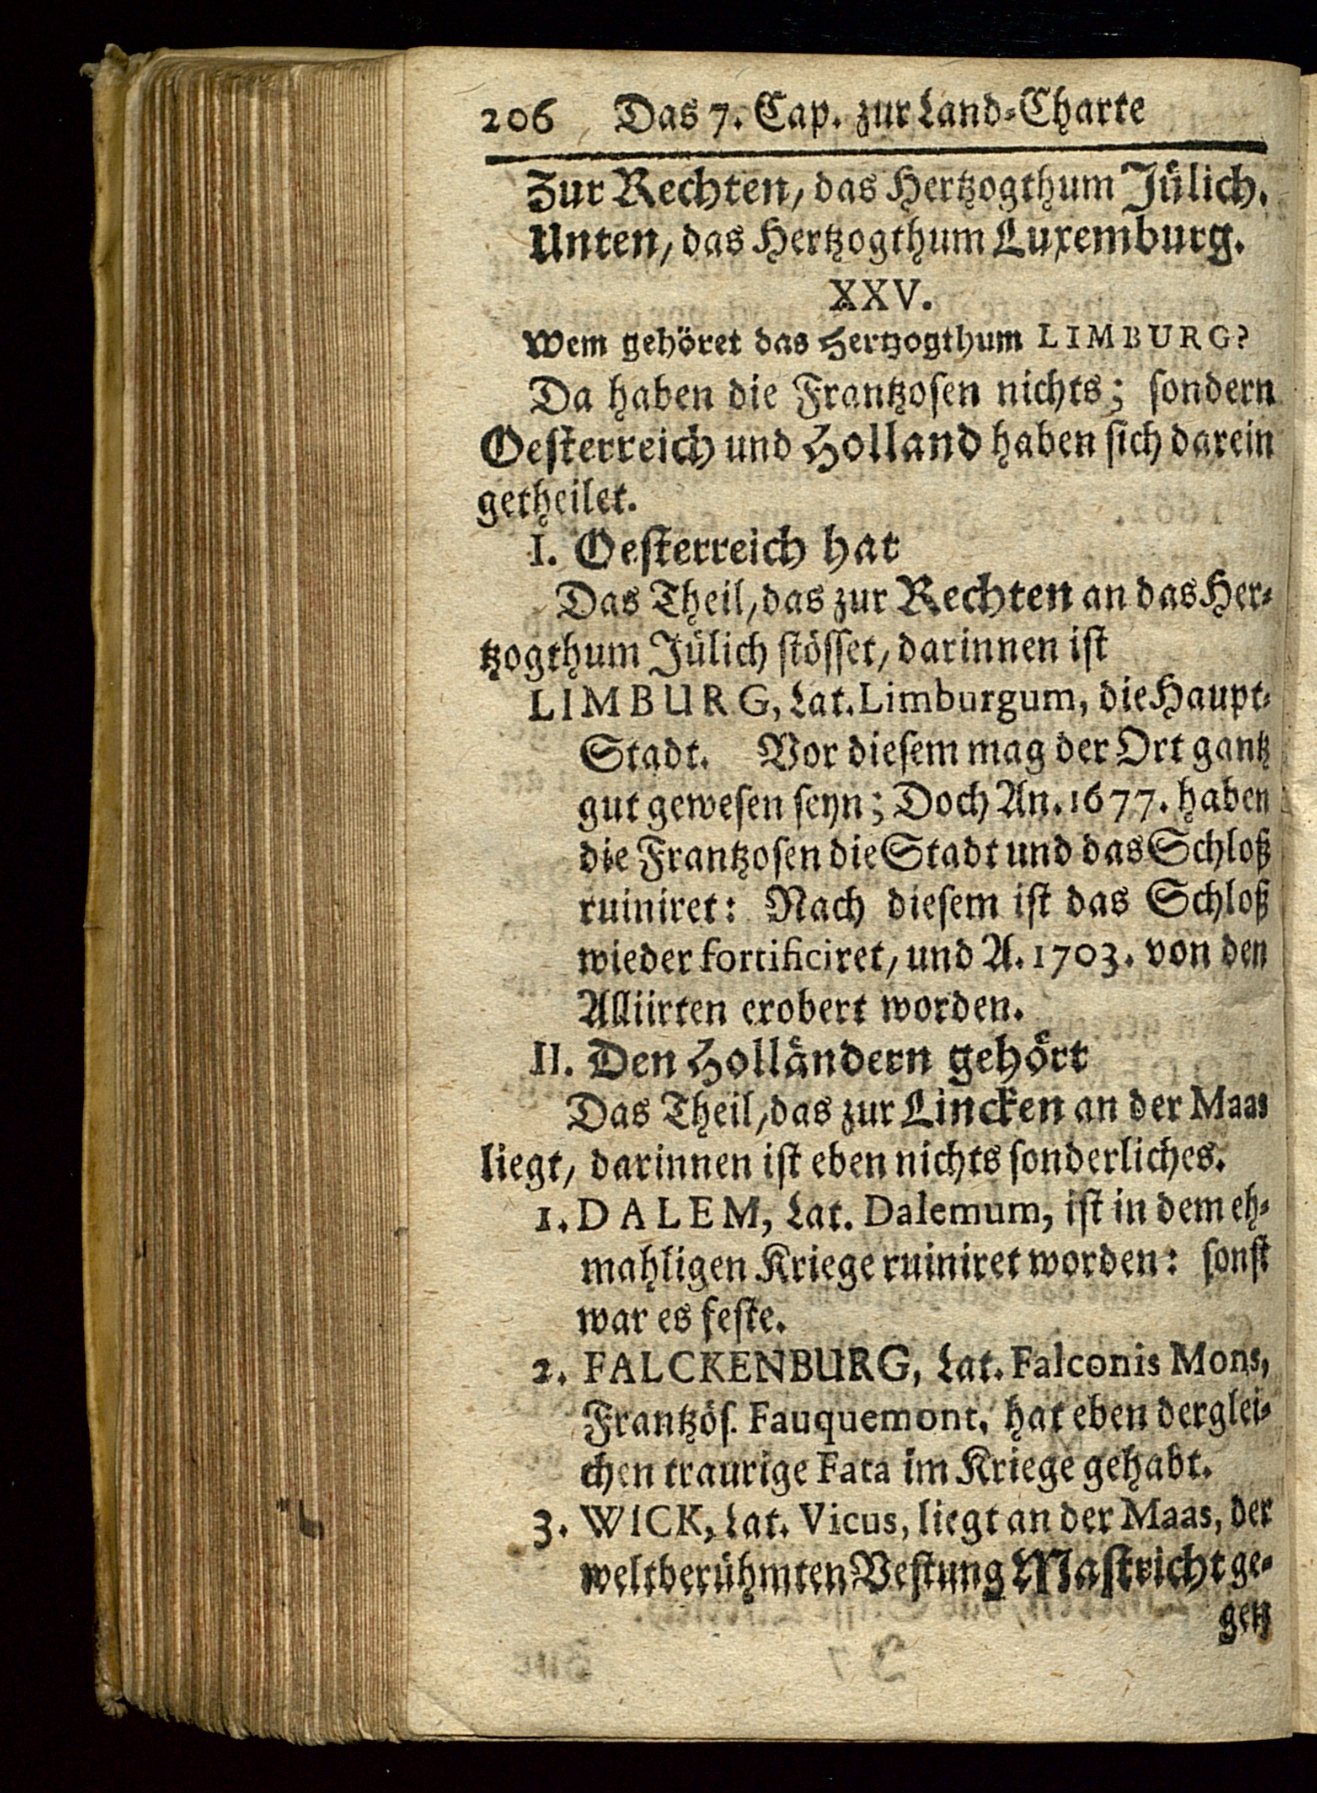 206 Das 7. Cap. zur Land-Charte
Zur Rechten, das Hertzogthum Jülich.
Unten, das Hertzogthum Luxemburg.
XXV.
Wem gehöret das Hertzogthum LIMBURG?
Da haben die Frantzosen nichts; sondern
Oesterreich und Holland haben sich darein
getheilet.
I. Oesterreich hat
Das Theil, das zur Rechten an das Her-
tzogthum Jülich stösset, darinnen ist
LIMBURG, Lat. Limburgum, die Haupt-
Stadt. Vor diesem mag der Ort gantz
gut gewesen seyn; Doch An. 1677. haben
die Frantzosen die Stadt und das Schloß
ruiniret: Nach diesem ist das Schloß
wieder fortificiret, und A. 1703. von den
Alliirten erobert worden.
II. Den Holländern gehört
Das Theil, das zur Lincken an der Maas
liegt, darinnen ist eben nichts sonderliches.
1. DALEM, Lat. Dalemum, ist in dem eh-
mahligen Kriege ruiniret worden: sonst
war es feste.
2. FALCKENBURG, Lat. Falconis Mons,
Frantzös. Fauquemont, hat eben derglei-
chen traurige Fata im Kriege gehabt.
3. WICK, Lat. Vicus, liegt an der Maas, der
weltberühmten Vestung Mastricht ge-
gen